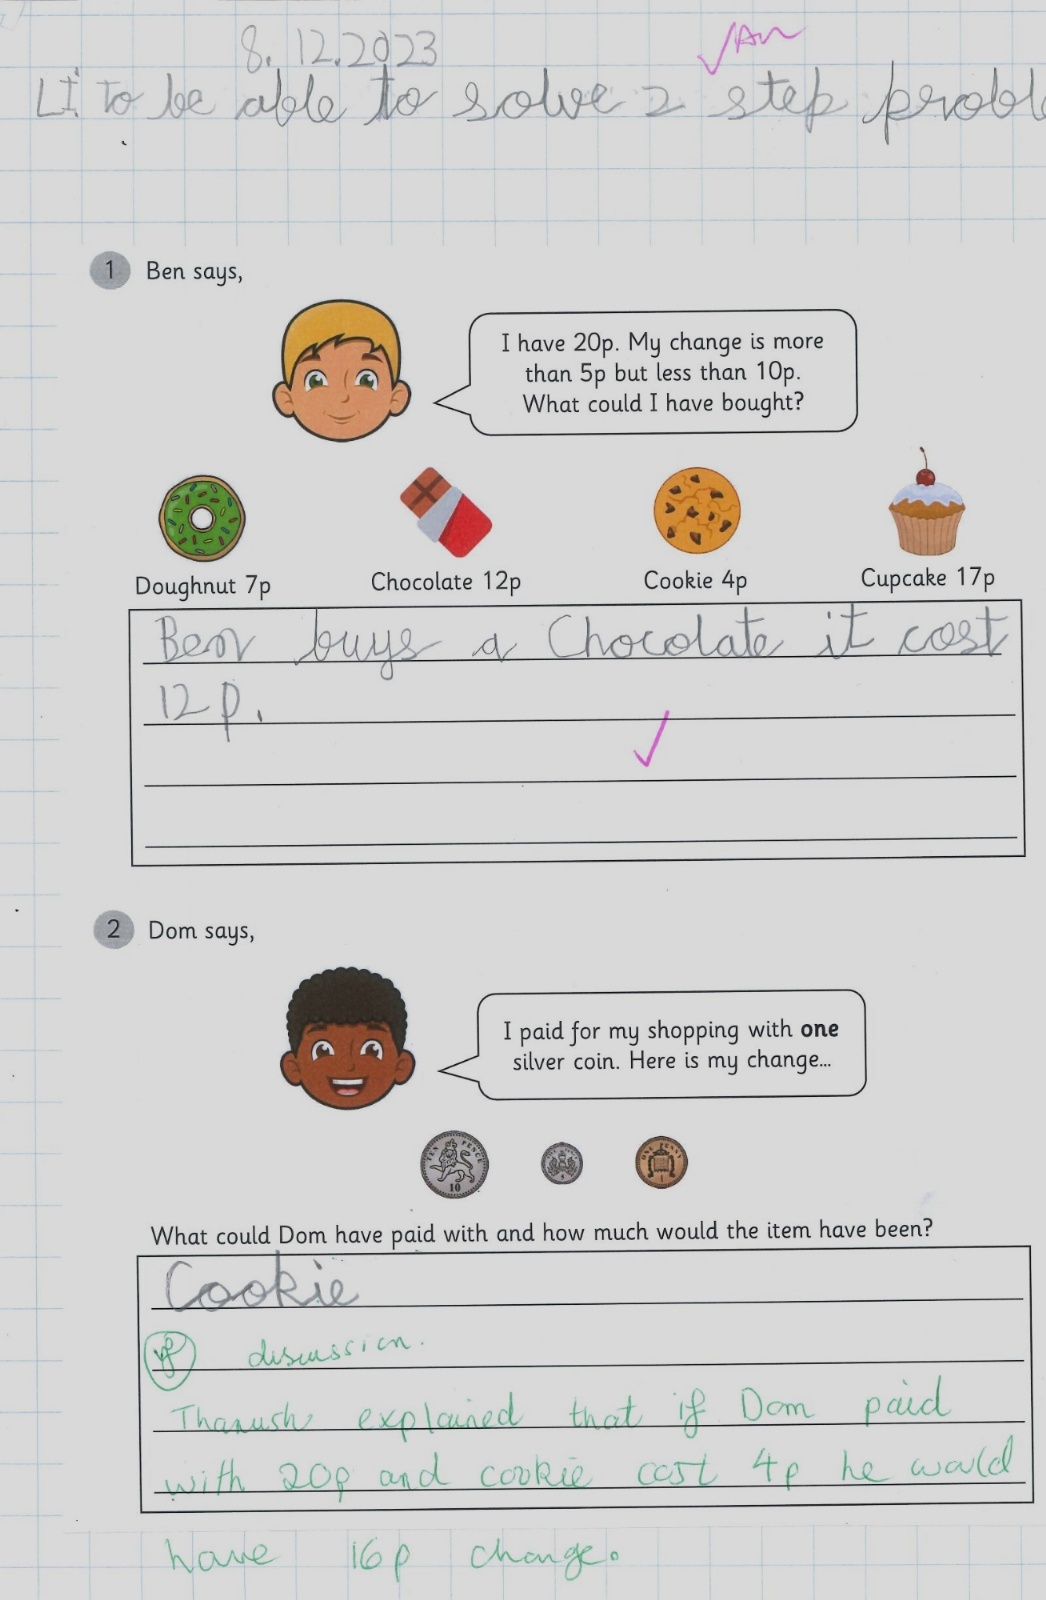 8.12.2023
LI to be able to solve 2 step proble
1 Ben says,
I have 20p. My change is more
than 5p but less than 10p.
What could I have bought?
Doughnut 7p
Chocolate 12p
Cookie 4p
Cupcake 17p
Ben buys a Chocolate it cost
12p.
2 Dom says,
I paid for my shopping with one
silver coin. Here is my change...
TEN PENCE
10
ONE PENNY
1
What could Dom have paid with and how much would the item have been?
Cookie
discussion.
Thanush explained that if Dom paid
with 20p and cookie cost 4p he would
have 16p change.